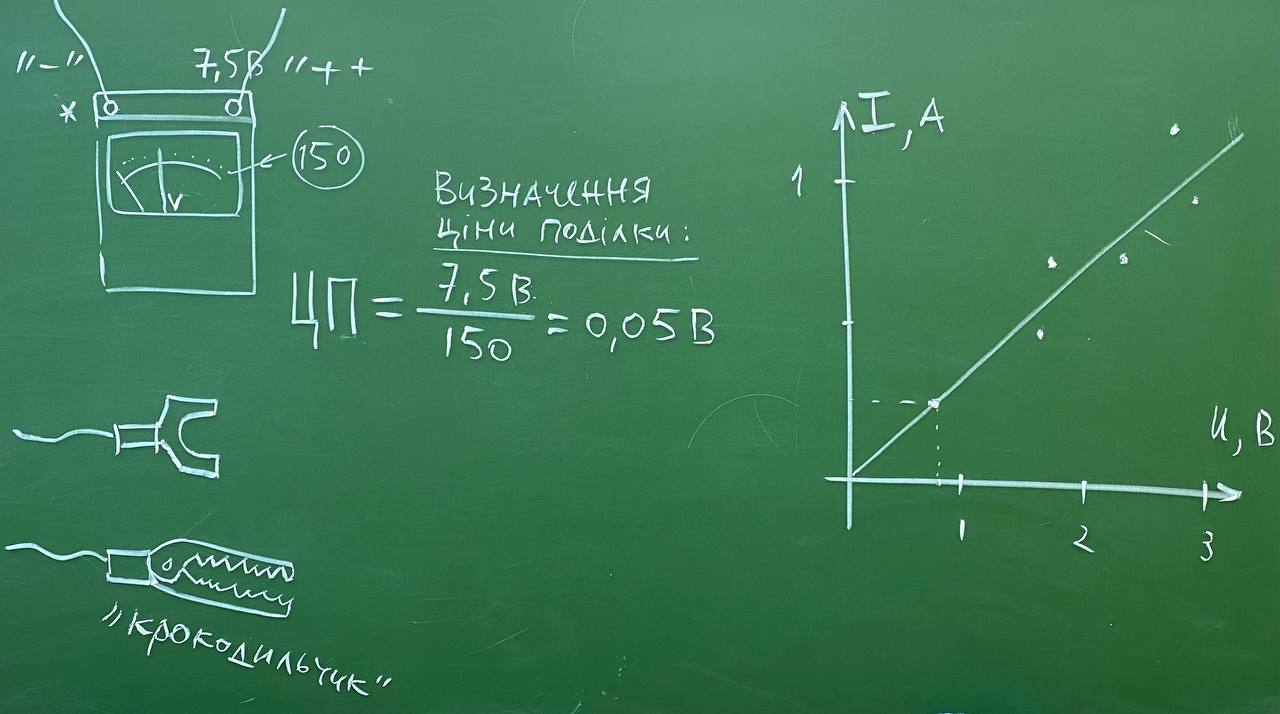 "-" 7,5В "++
*
150
Визначення
ціни поділки:
ЦП = 7,5 В / 150 = 0,05 В
"крокодильчик"
V
I, A
1
U, В
1 2 3